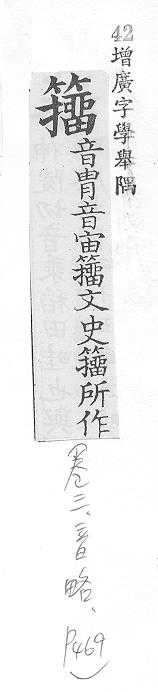 42 增廣字學舉隅
籕音胄音宙籕文史籕所作
卷三、音略、P469)